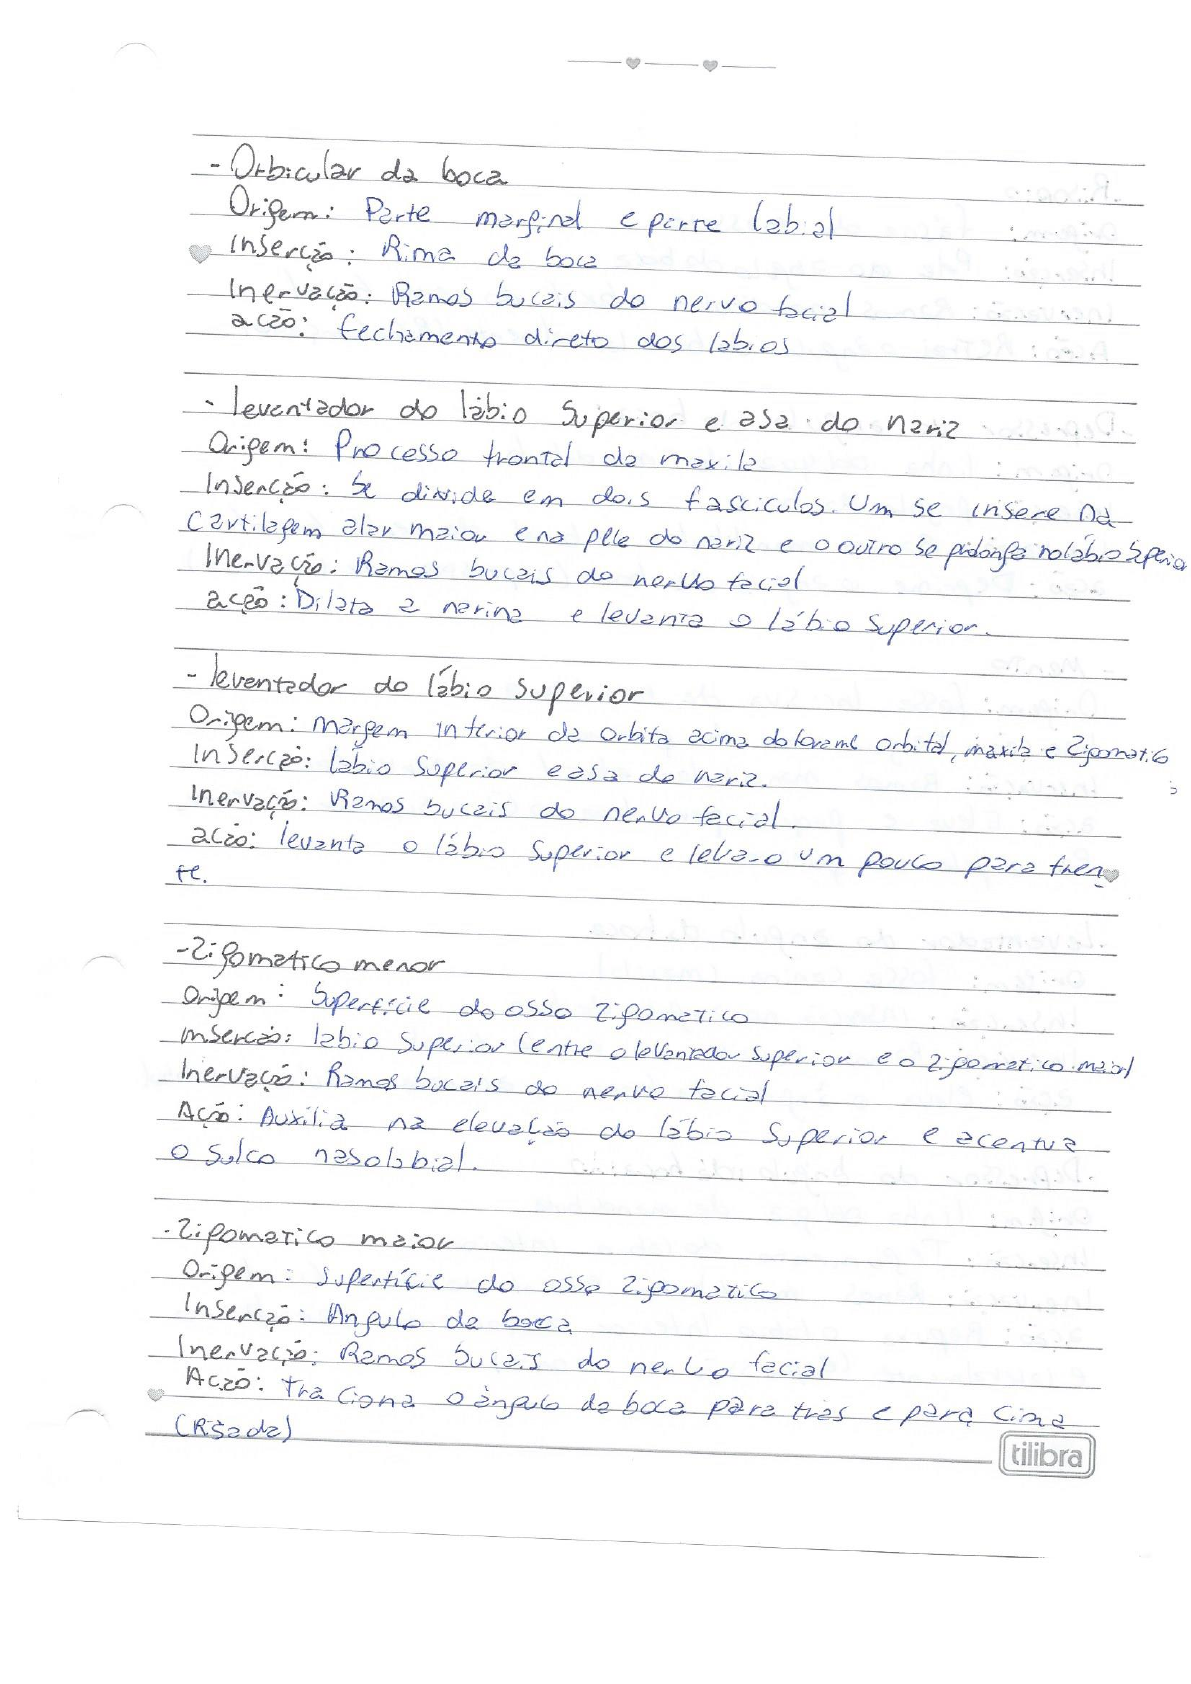 - Orbicular da boca
Origem: Parte marginal e parte labial
Inserção: Rima da boca
Inervação: Ramos bucais do nervo facial
ação: fechamento direto dos lábios
- levantador do lábio Superior e asa do nariz
Origem: Processo frontal da maxila
Inserção: Se divide em dois fasciculos. Um se insere na
Cartilagem alar maior e na pele do nariz e o outro se prolonga no lábio Superior
Inervação: Ramos bucais do nervo facial
ação: Dilata a narina e levanta o lábio Superior.
- levantador do lábio superior
Origem: margem inferior da orbita acima do forame orbital, maxila e Zigomatico
Inserção: lábio Superior e asa do nariz.
Inervação: Ramos bucais do nervo facial.
ação: levanta o lábio Superior e leva-o um pouco para fren
te.
- Zigomatico menor
Origem: Superfície do osso Zigomatico
Inserção: lábio Superior (entre o levantador Superior e o Zigomatico maior)
Inervação: Ramos bucais do nervo facial
Ação: Auxilia na elevação do lábio Superior e acentua
o Sulco nasolabial.
- Zigomatico maior
Origem: Superfície do osso Zigomatico
Inserção: Angulo da boca
Inervação: Ramos bucais do nervo facial
Ação: traciona o ângulo da boca para trás e para Cima
(Risada)
tilibra